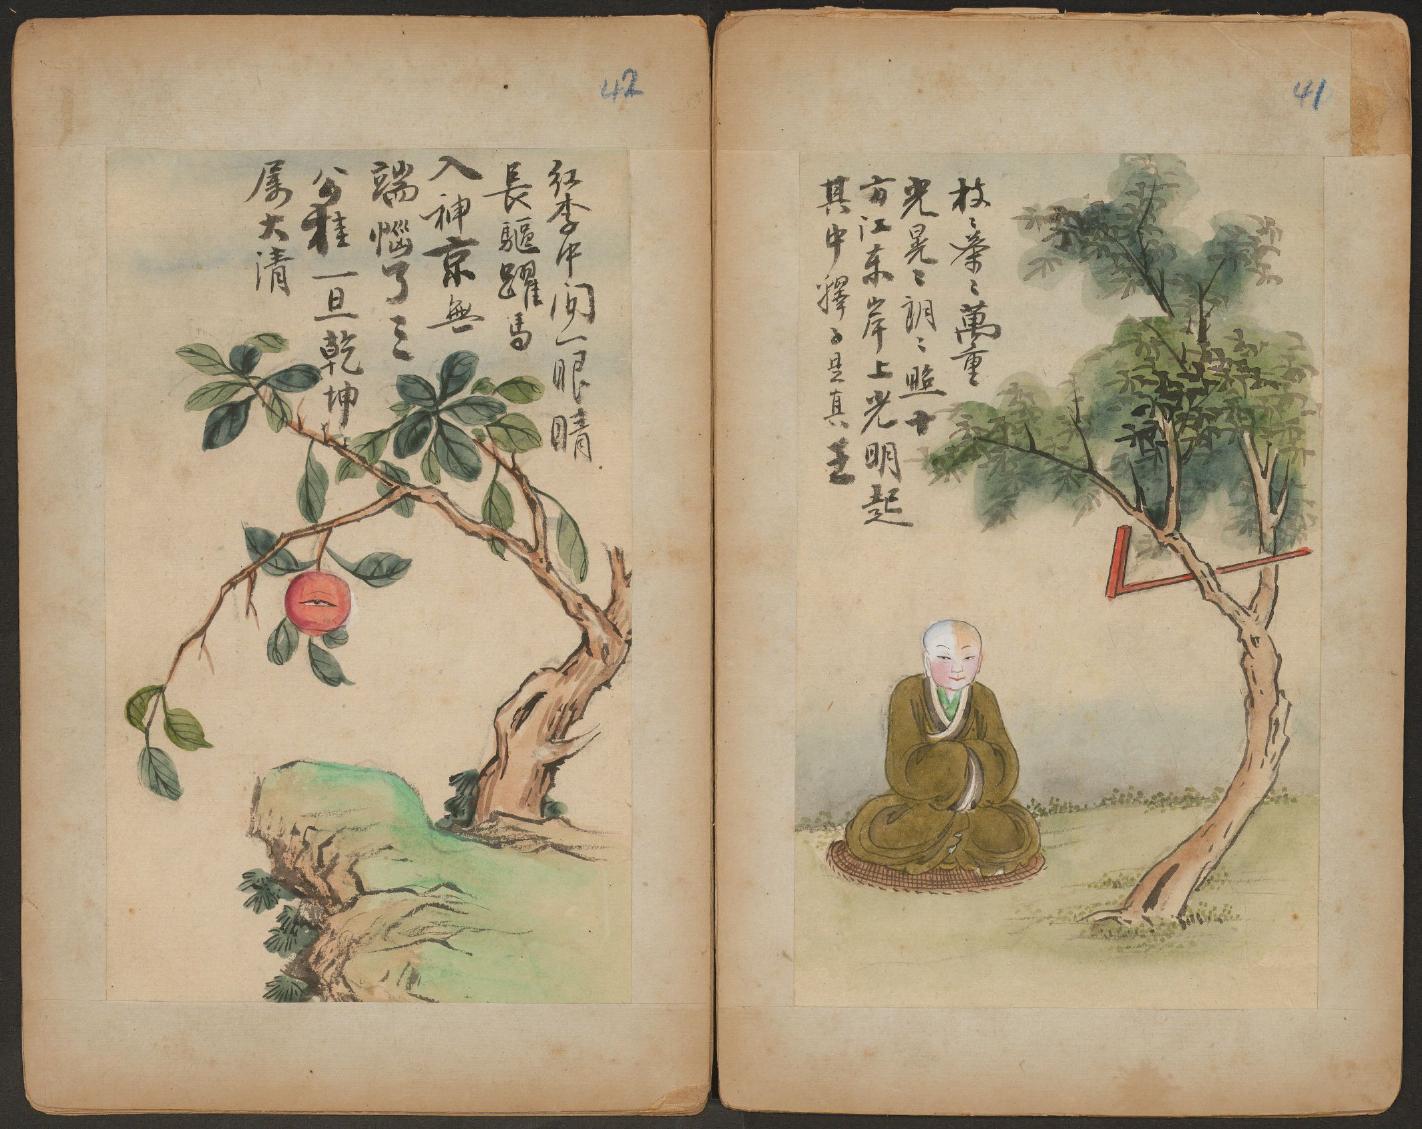 41
枝〻葉〻萬重
光晃〻朗〻照十
方江東岸上光明起
其中釋子是真主
42
紅李中開一眼睛
長驅躍馬
入神京無
端惱了三
公桂一旦乾坤
属大清